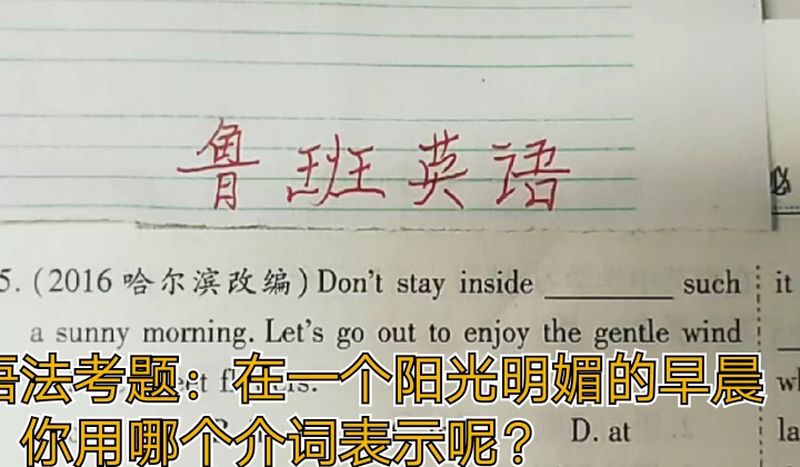 鲁班英语
5. (2016 哈尔滨改编) Don't stay inside ________ such
a sunny morning. Let's go out to enjoy the gentle wind
语法考题：在一个阳光明媚的早晨
你用哪个介词表示呢？
D. at
it
wh
la